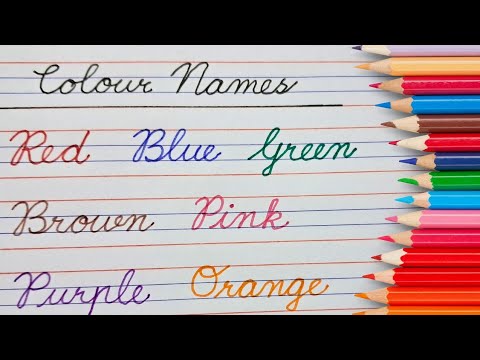 Colour Names
Red Blue Green
Brown Pink
Purple Orange